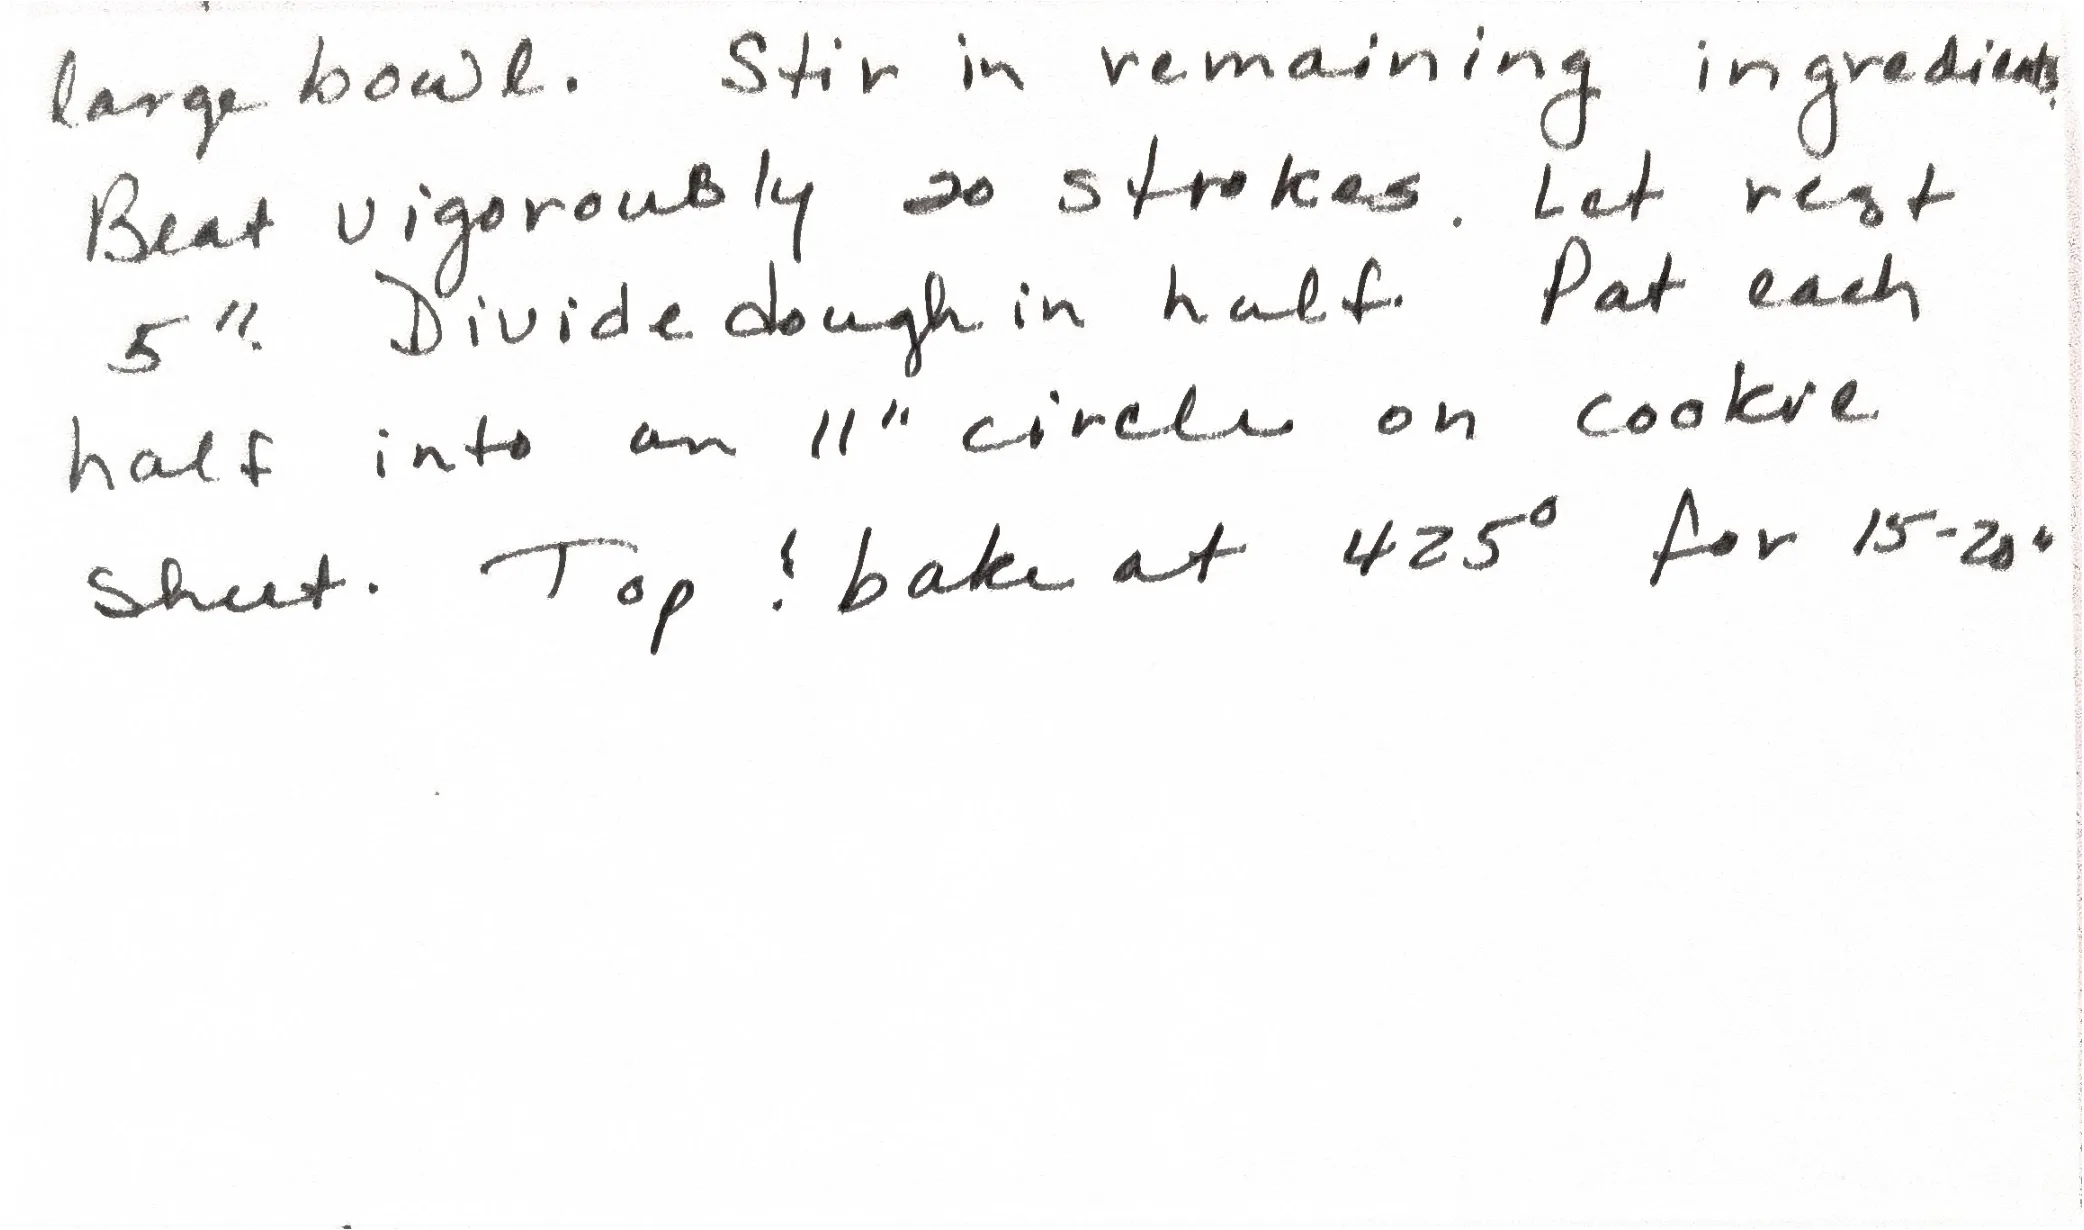 large bowl. Stir in remaining ingredients.
Beat vigorously 20 strokes. Let rest
5". Divide dough in half. Pat each
half into an 11" circle on cookie
sheet. Top & bake at 425° for 15-20"